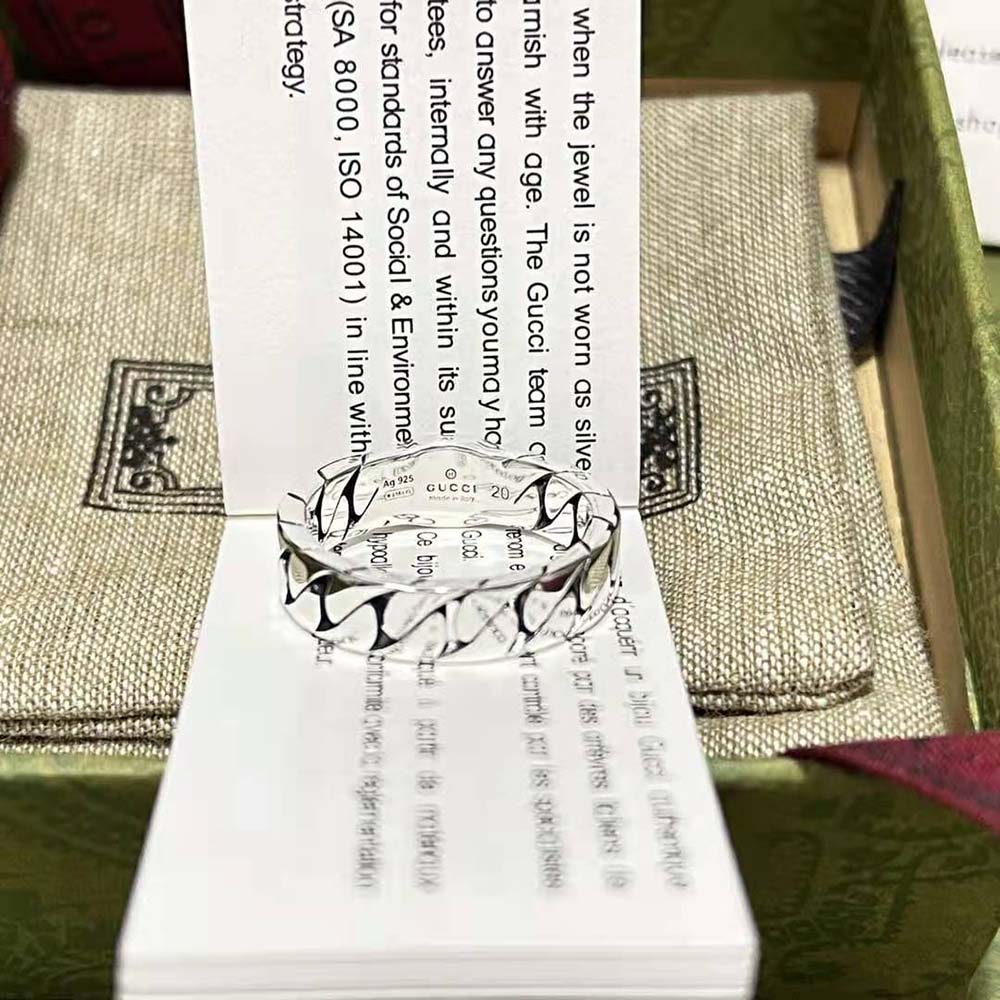 when the jewel is not worn as silve
mish with age. The Gucci team
to answer any questions you may ha
tees, internally and within its su
for standards of Social & Environme
(SA 8000, ISO 14001) in line with
strategy.
Ag 925
GUCCI
made in Italy
20
d'acquérir un bijou Gucci authentique
par des orfèvres italiens
contrôle par les spécialistes
Gucci.
Ce bijou
à partir de matériaux
conformité avec la réglementation
please
sho